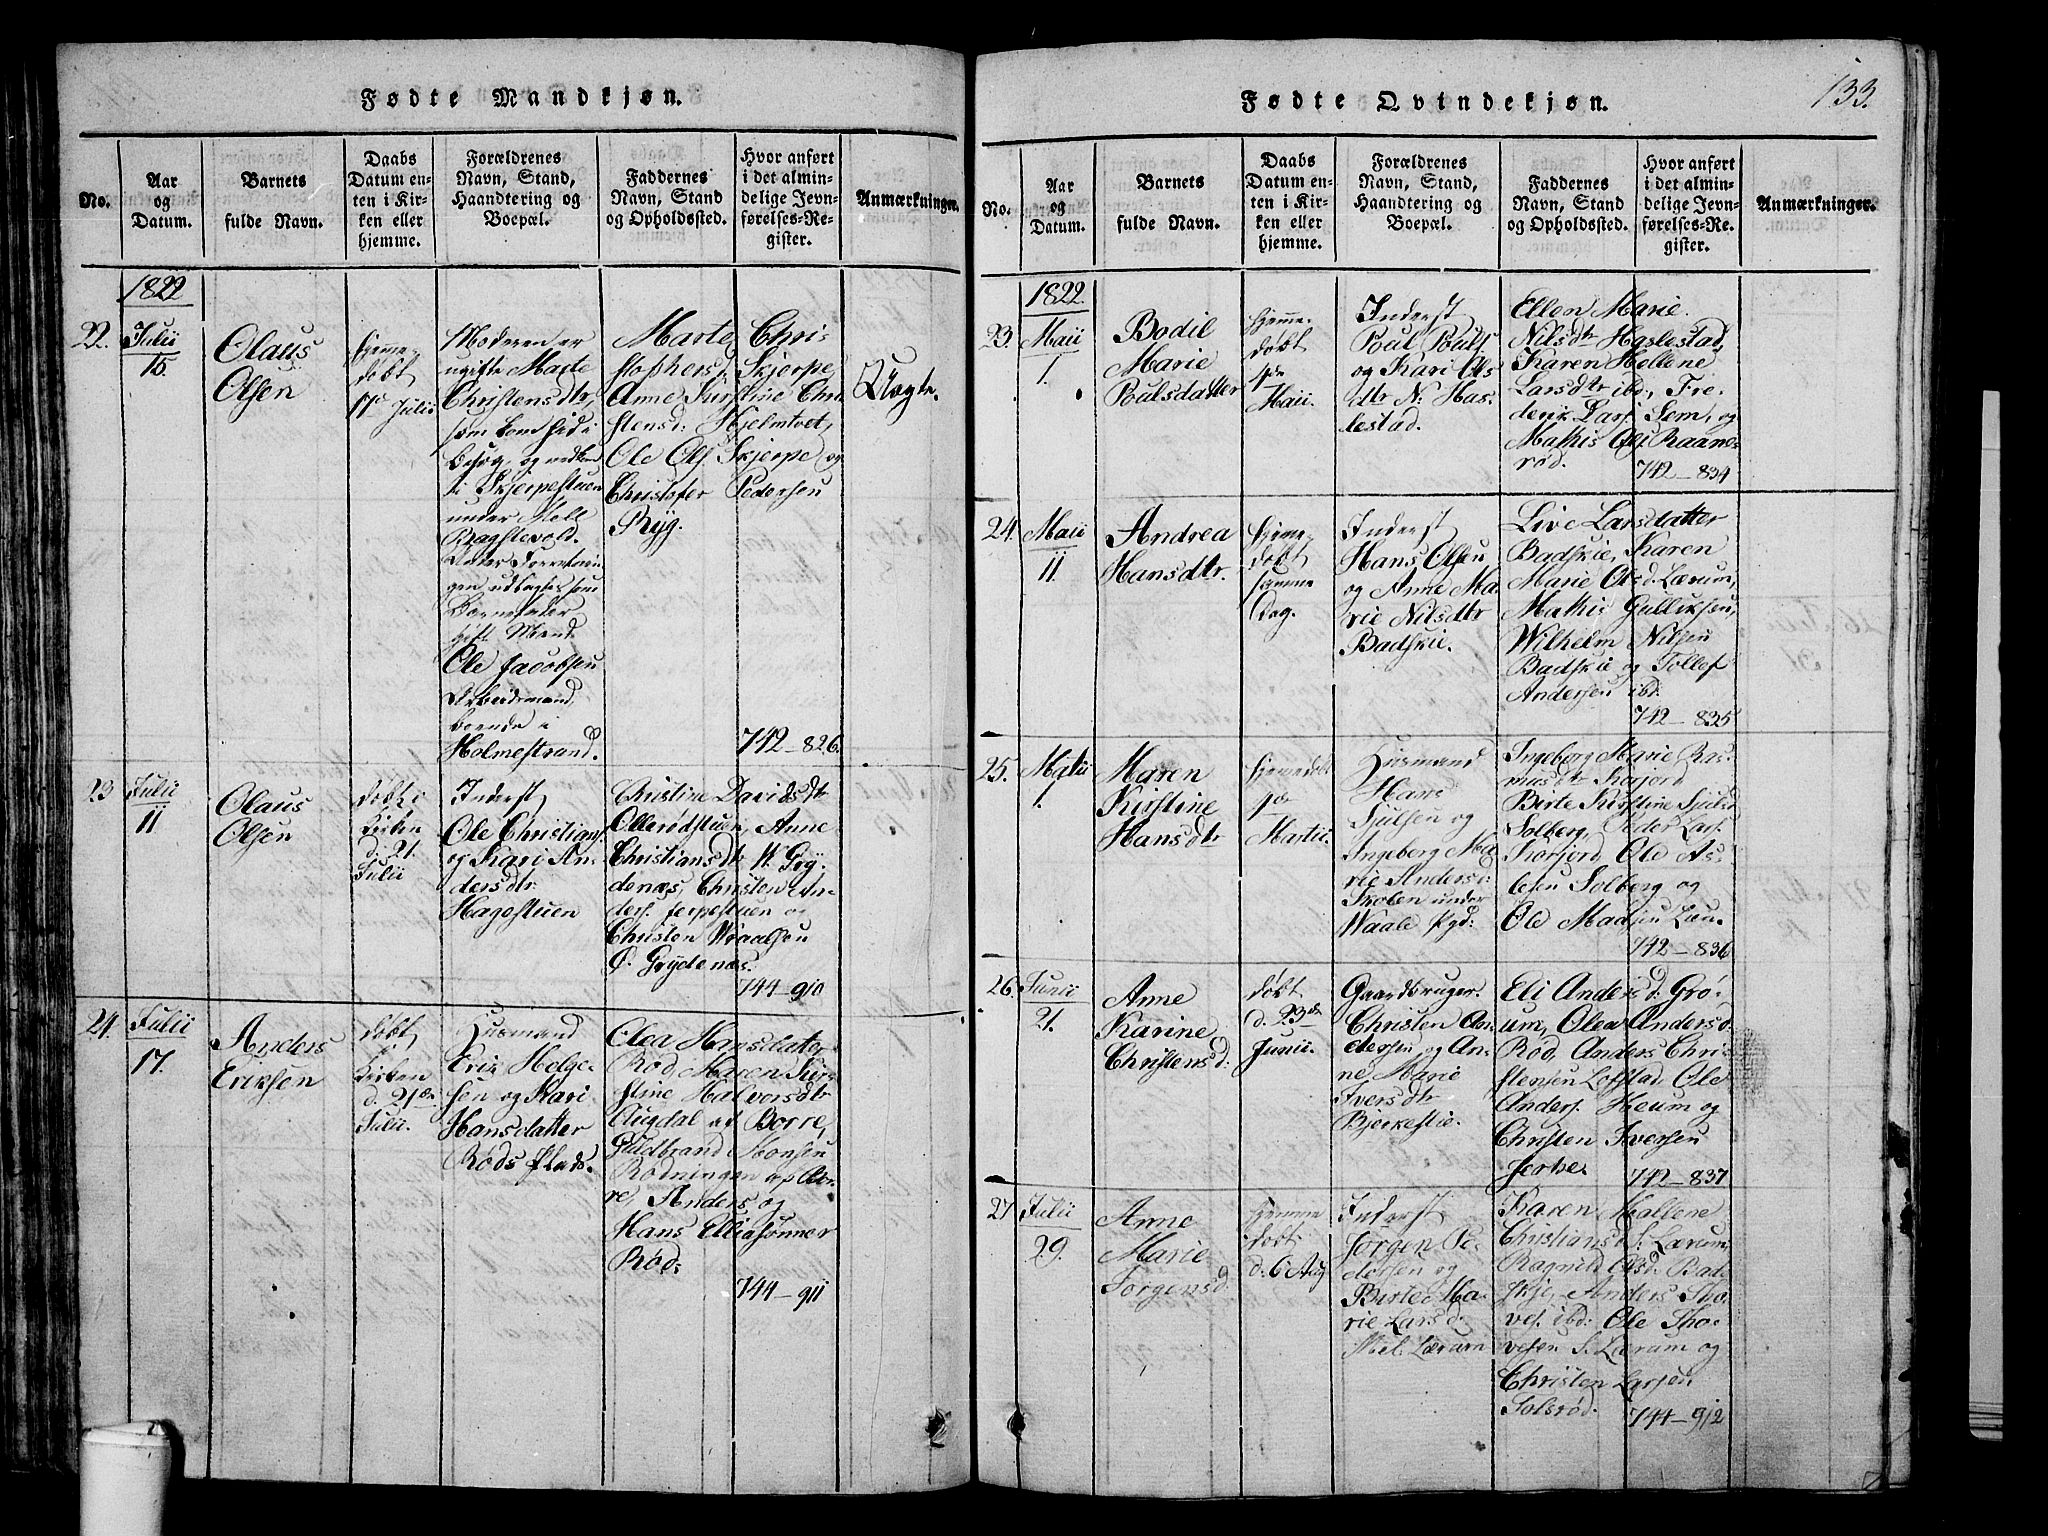 Fødte Mandkjøn.
No.
Aar
og
Datum.
Barnets
fulde Navn.
Daabs
Datum en-
ten i Kir-
ken eller
hjemme.
Forældrenes
Navn, Stand,
Haandtering og
Boepæl.
Faddernes
Navn, Stand
og Opholdssted.
Hvor anført
i det almin-
delige Jevn-
førelses-Re-
gister.
Anmærkninger.
1822
22.
Julii
15.
Olaus
Olsen
hjemme-
døbt
17 Julii
Moderen er
ugifte Marte
Christensdtr
som kom hid i
besøg, og nedkom
i Skjerpestuen
under
Bagstevold.
udlagdes som
Barnefader
gift Mand
Ole Jacobsen
Arbeidsmand,
boende i
Holmestrand.
Marte Chri-
stophersd: Skjerpe,
Anne Kirstine Chri-
stensd: Hjelmtvet,
Ole Ols. Skjerpe og
Christofer Pedersen
Ryg.
742-826.
Uægte.
23
Julii
11
Olaus
Olsen
døbt i
Kirken
d. 21.
Julii
Inderst
Ole Christians.
og Kari An-
dersdtr.
Hagestuen
Christine Davidsdtr
Ollerødstuen, Anne
Christiansdtr N. Gry-
denæs, Christen An-
ders. Jerpestuen og
Christen Wraalsen
Ø. Grydenæs.
744-910
24.
Julii
17.
Anders
Eriksen
døbt
i
Kirken
d. 21de
Julii.
Huusmand
Erik Helge-
sen og Kari
Hansdatter
Røds Plads.
Olea Hansdatter
Rød, Maren Kir-
stine Halvorsdtr
Augdal af Borre,
Guldbrand Monsen
Rødningen af Bor-
re, Anders og
Hans Elliasønner
Rød:
744-911
Fødte Qvindekjøn.
133.
No.
Aar
og
Datum.
Barnets
fulde Navn.
Daabs
Datum en-
ten i Kir-
ken eller
hjemme.
Forældrenes
Navn, Stand,
Haandtering og
Boepæl.
Faddernes
Navn, Stand
og Opholdssted.
Hvor anført
i det almin-
delige Jevn-
førelses-Re-
gister.
Anmærkninger.
1822.
23.
Maii
1.
Bodil
Marie
Poulsdatter
hjemme-
døbt
1ste
Maii.
Inderst
Poul Pouls.
og Kari Ols-
dtr N: Has-
lestad.
Ellen Marie
Nilsdtr Haslestad,
Karen Hellene
Larsdtr ibd., Fre-
derik Lars. Sem, og
Mathis Ols. Raane-
rød.
742-834
24.
Maii
11.
Andrea
Hansdtr.
hjemme-
døbt
samme
Dag.
Inderst
Hans Olsen
og Anne Ma-
rie Nilsdtr
Badskie.
Live Larsdatter
Badskie, Karen
Marie Olsd. Lærum,
Mathis Gulliksen,
Wilhelm Nilsen
Badskie og Tollef
Andersen ibd.
742-835
25.
Martii
1.
Maren
Kirstine
Hansdtr
hjemedøbt
1ste
Martii.
Huusmand
Hans
Sjulsen og
Ingeborg Ma-
rie Anders:
Skolen under
Waale Pgd:
Ingeborg Marie Ras-
musdtr Korjord
Birte Kirstine Sjulsd
Solberg, Peder Lars.
Korjord, Ole As-
lesen Solberg og
Ole Madsen Lien.
742-836
26.
Junii
21.
Anne
Karine
Christensd:
døbt
d. 23de
Junii.
Gaardbruger.
Christen An-
dersen og An-
ne Marie
Iversdtr
Bjerkestie.
Eli Andersd: Grø-
um, Olea Andersd.
Rød, Anders Chri-
stensen Lofstad, Ole
Anders. Heum og
Christen Iversen
Jerpe.
742-837
27
Julii
29.
Anne
Marie
Jørgensd.
hjemme
døbt
d. 6 Aug
Inderst
Jørgen Pe-
dersen og
Birte Ma-
rie Larsd.
Mel. Lærum
Karen Mallene
Christiansd. S: Lærum,
Ragnild Olsd. Bad-
skje, Anders Tho-
res. ibd: Ole Tho-
resen S. Lærum og
Christen Larsen
Solsrød.
744-912